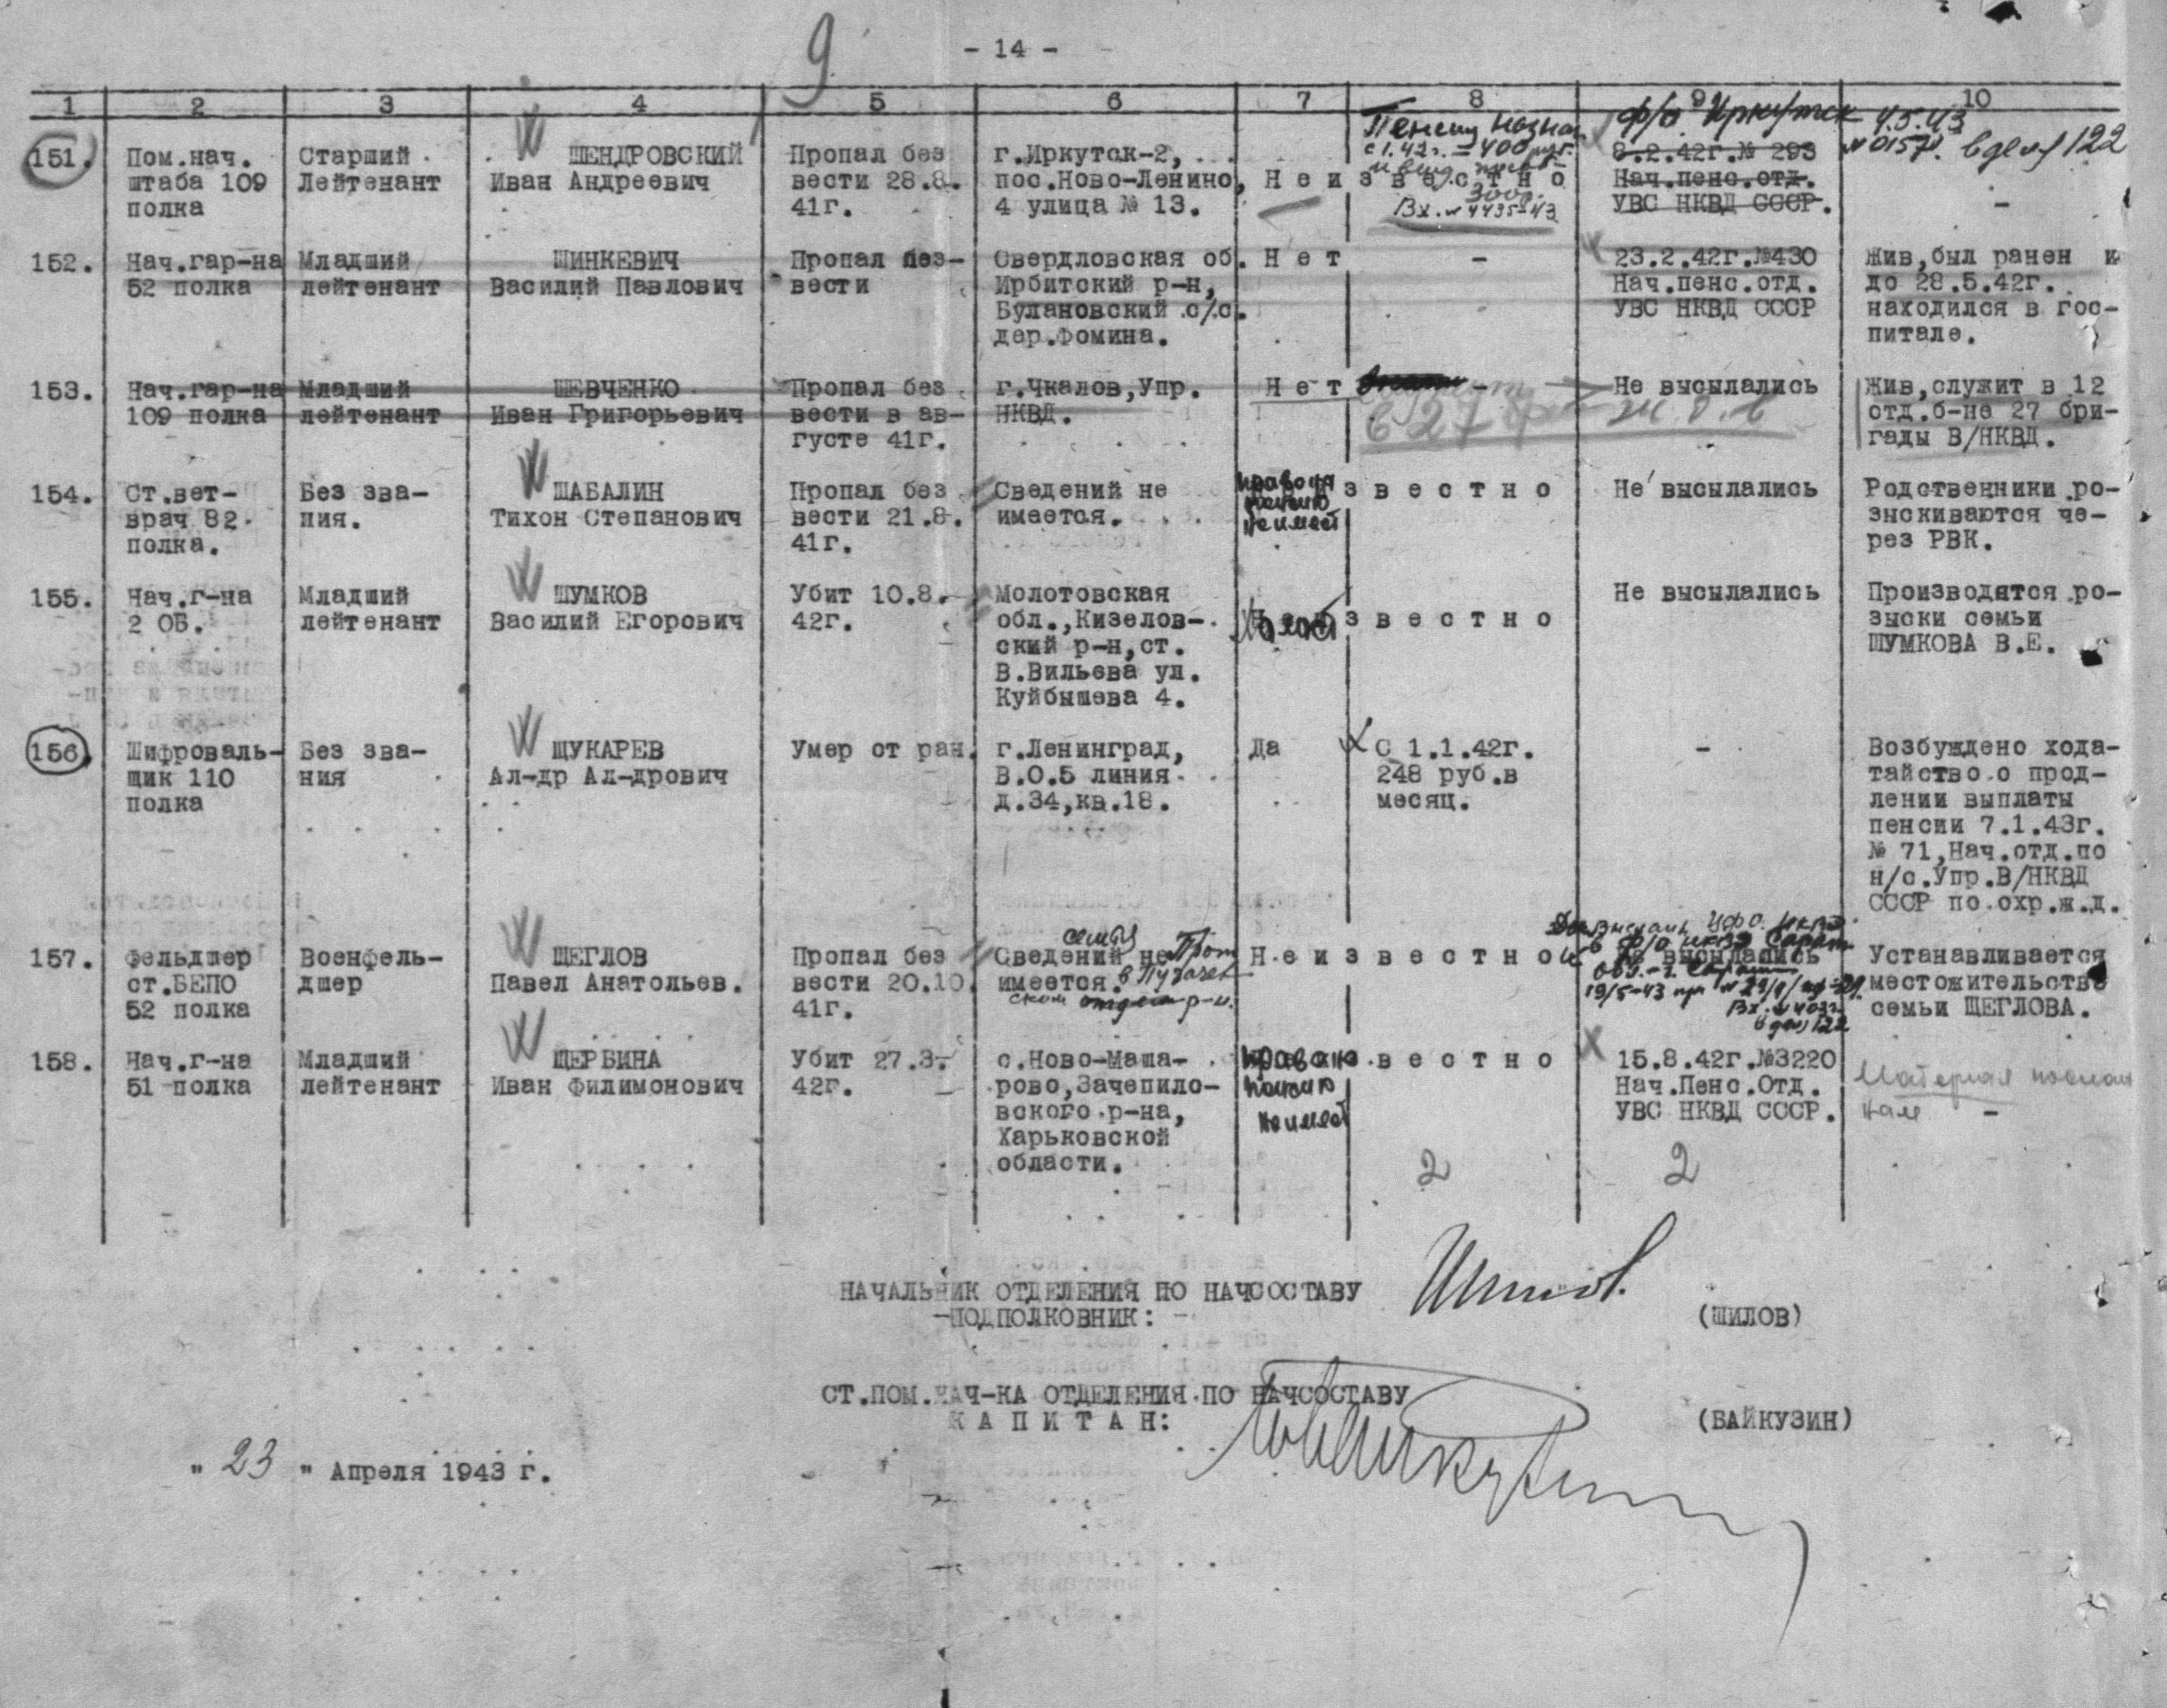 9
- 14 -
1 2 3 4 5 6 7 8 9 10
151. Пом.нач. штаба 109 полка
Старший Лейтенант
ШЕНДРОВСКИЙ
Иван Андреевич
Пропал без
вести 28.8.
41г.
г.Иркутск-2,
пос.Ново-Ленино,
4 улица № 13.
Н е и з в е с т н о
с 1.42г. = 400 руб.
300р.
Вх. № 4435-43
ф/о Иркутск 4.5.43
№ 0157. в деле 122
8.2.42г.№ 293
Нач.пенс.отд.
УВС НКВД СССР.
-
152. Нач.гар-на
52 полка
Младший
лейтенант
ШИНКЕВИЧ
Василий Павлович
Пропал без-
вести
Свердловская об.
Ирбитский р-н,
Булановский с/с.
дер.Фомина.
Н е т
-
23.2.42г.№430
Нач.пенс.отд.
УВС НКВД СССР
Жив,был ранен и
до 28.5.42г.
находился в гос-
питале.
153. Нач.гар-на
109 полка
Младший
лейтенант
ШЕВЧЕНКО
Иван Григорьевич
Пропал без
вести в ав-
густе 41г.
г.Чкалов,Упр.
НКВД.
Н е т
-
в 27
Не высылались
Жив,служит в 12
отд.б-не 27 бри-
гады В/НКВД.
154. Ст.вет-
врач 82
полка.
Без зва-
ния.
ШАБАЛИН
Тихон Степанович
Пропал без
вести 21.8.
41г.
Сведений не
имеется.
з в е с т н о
права на
пенсию
не имеет
Не высылались
Родственники ро-
зыскиваются че-
рез РВК.
155. Нач.г-на
2 ОБ.
Младший
лейтенант
ШУМКОВ
Василий Егорович
Убит 10.8.
42г.
Молотовская
обл.,Кизелов-
ский р-н,ст.
В.Вильева ул.
Куйбышева 4.
з в е с т н о
Холост
Не высылались
Производятся ро-
зыски семьи
ШУМКОВА В.Е.
156. Шифроваль-
щик 110
полка
Без зва-
ния
ЩУКАРЕВ
Ал-др Ал-дрович
Умер от ран.
г.Ленинград,
В.О.5 линия
д.34,кв.18.
Да
С 1.1.42г.
248 руб.в
месяц.
-
Возбуждено хода-
тайство о прод-
лении выплаты
пенсии 7.1.43г.
№ 71,Нач.отд.по
н/с.Упр.В/НКВД
СССР по охр.ж.д.
157. Фельдшер
ст.БЕПО
52 полка
Военфель-
дшер
ЩЕГЛОВ
Павел Анатольев.
Пропал без
вести 20.10.
41г.
семья
Сведений не
имеется.
р-н.
Н е и з в е с т н о
в ф/о НКВД Сарат.
Не высылались
19/5-43
в деле 122
Устанавливается
местожительство
семьи ЩЕГЛОВА.
158. Нач.г-на
51 полка
Младший
лейтенант
ЩЕРБИНА
Иван Филимонович
Убит 27.3.
42г.
с.Ново-Маша-
рово,Зачепило-
вского р-на,
Харьковской
области.
в е с т н о
права на
пенсию
не имеет
15.8.42г.№3220
Нач.Пенс.Отд.
УВС НКВД СССР.
Материал послан
нам -
2 2
НАЧАЛЬНИК ОТДЕЛЕНИЯ ПО НАЧСОСТАВУ
-ПОДПОЛКОВНИК: -
Шилов.
(ШИЛОВ)
СТ.ПОМ.НАЧ-КА ОТДЕЛЕНИЯ ПО НАЧСОСТАВУ
К А П И Т А Н:
Байкузин
(БАЙКУЗИН)
" 23 " Апреля 1943 г.